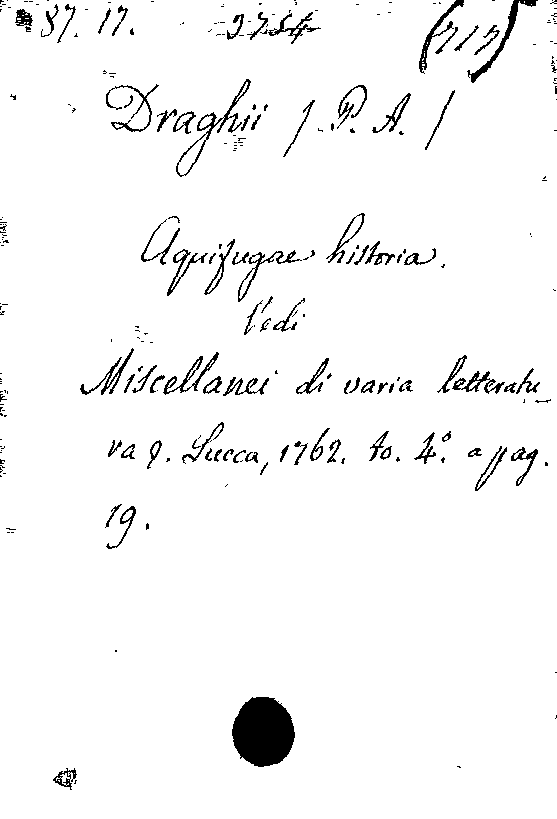 87. 17. 2754 (717)
Draghii / P. A. /
Aquifugae historia.
Vedi
Miscellanei di varia letteratu_
ra &. Lucca, 1762. to. 4º. a pag.
19.